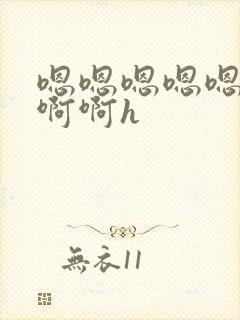 嗯嗯嗯嗯嗯
啊啊h
無衣11